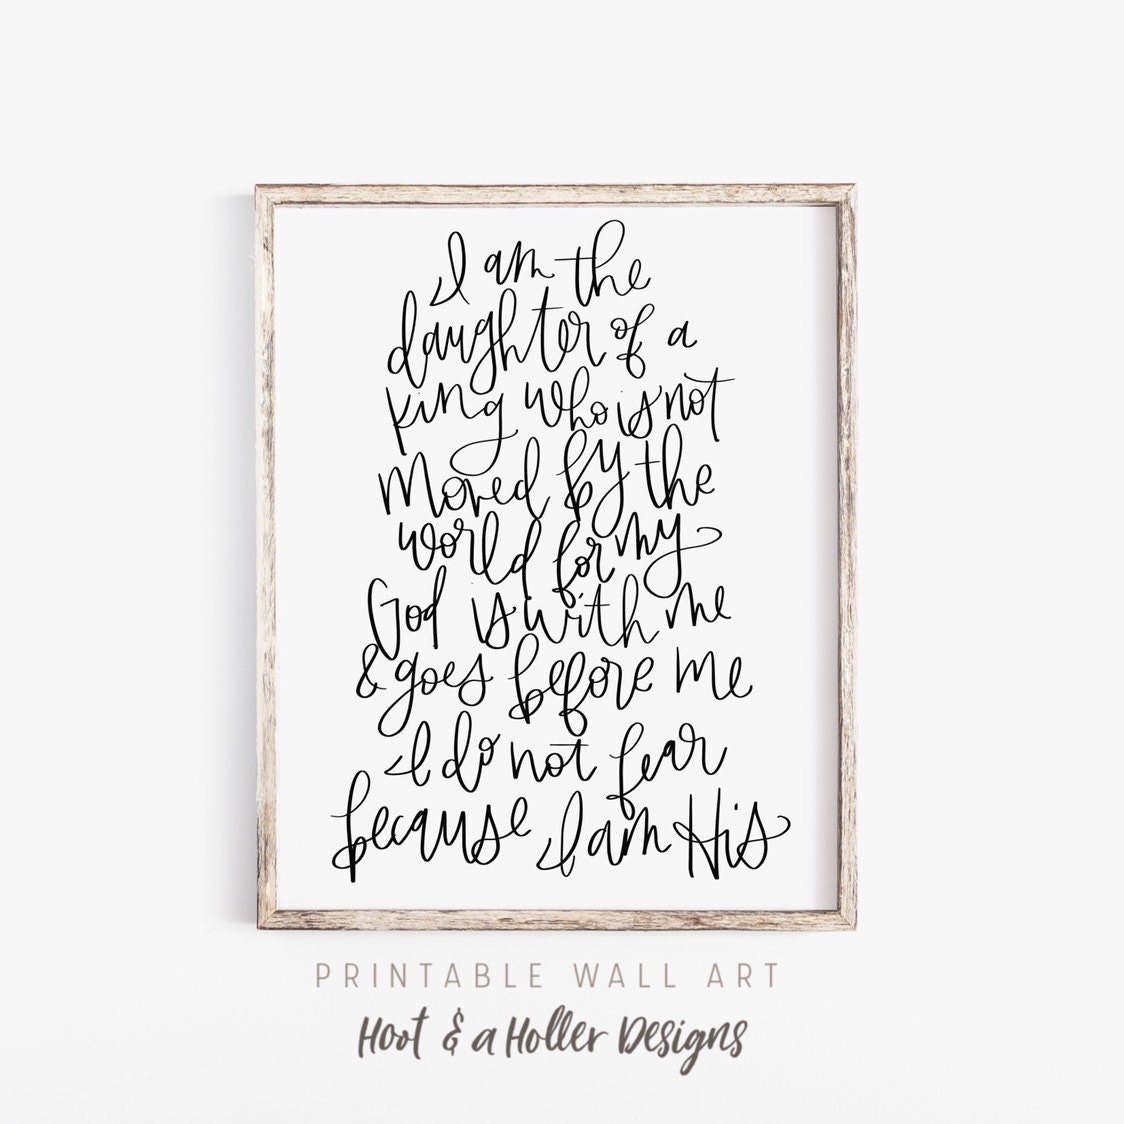 I am the
daughter of a
king who is not
moved by the
world for my
God is with me
& goes before me
I do not fear
because I am His
PRINTABLE WALL ART
Hoot & a Holler Designs